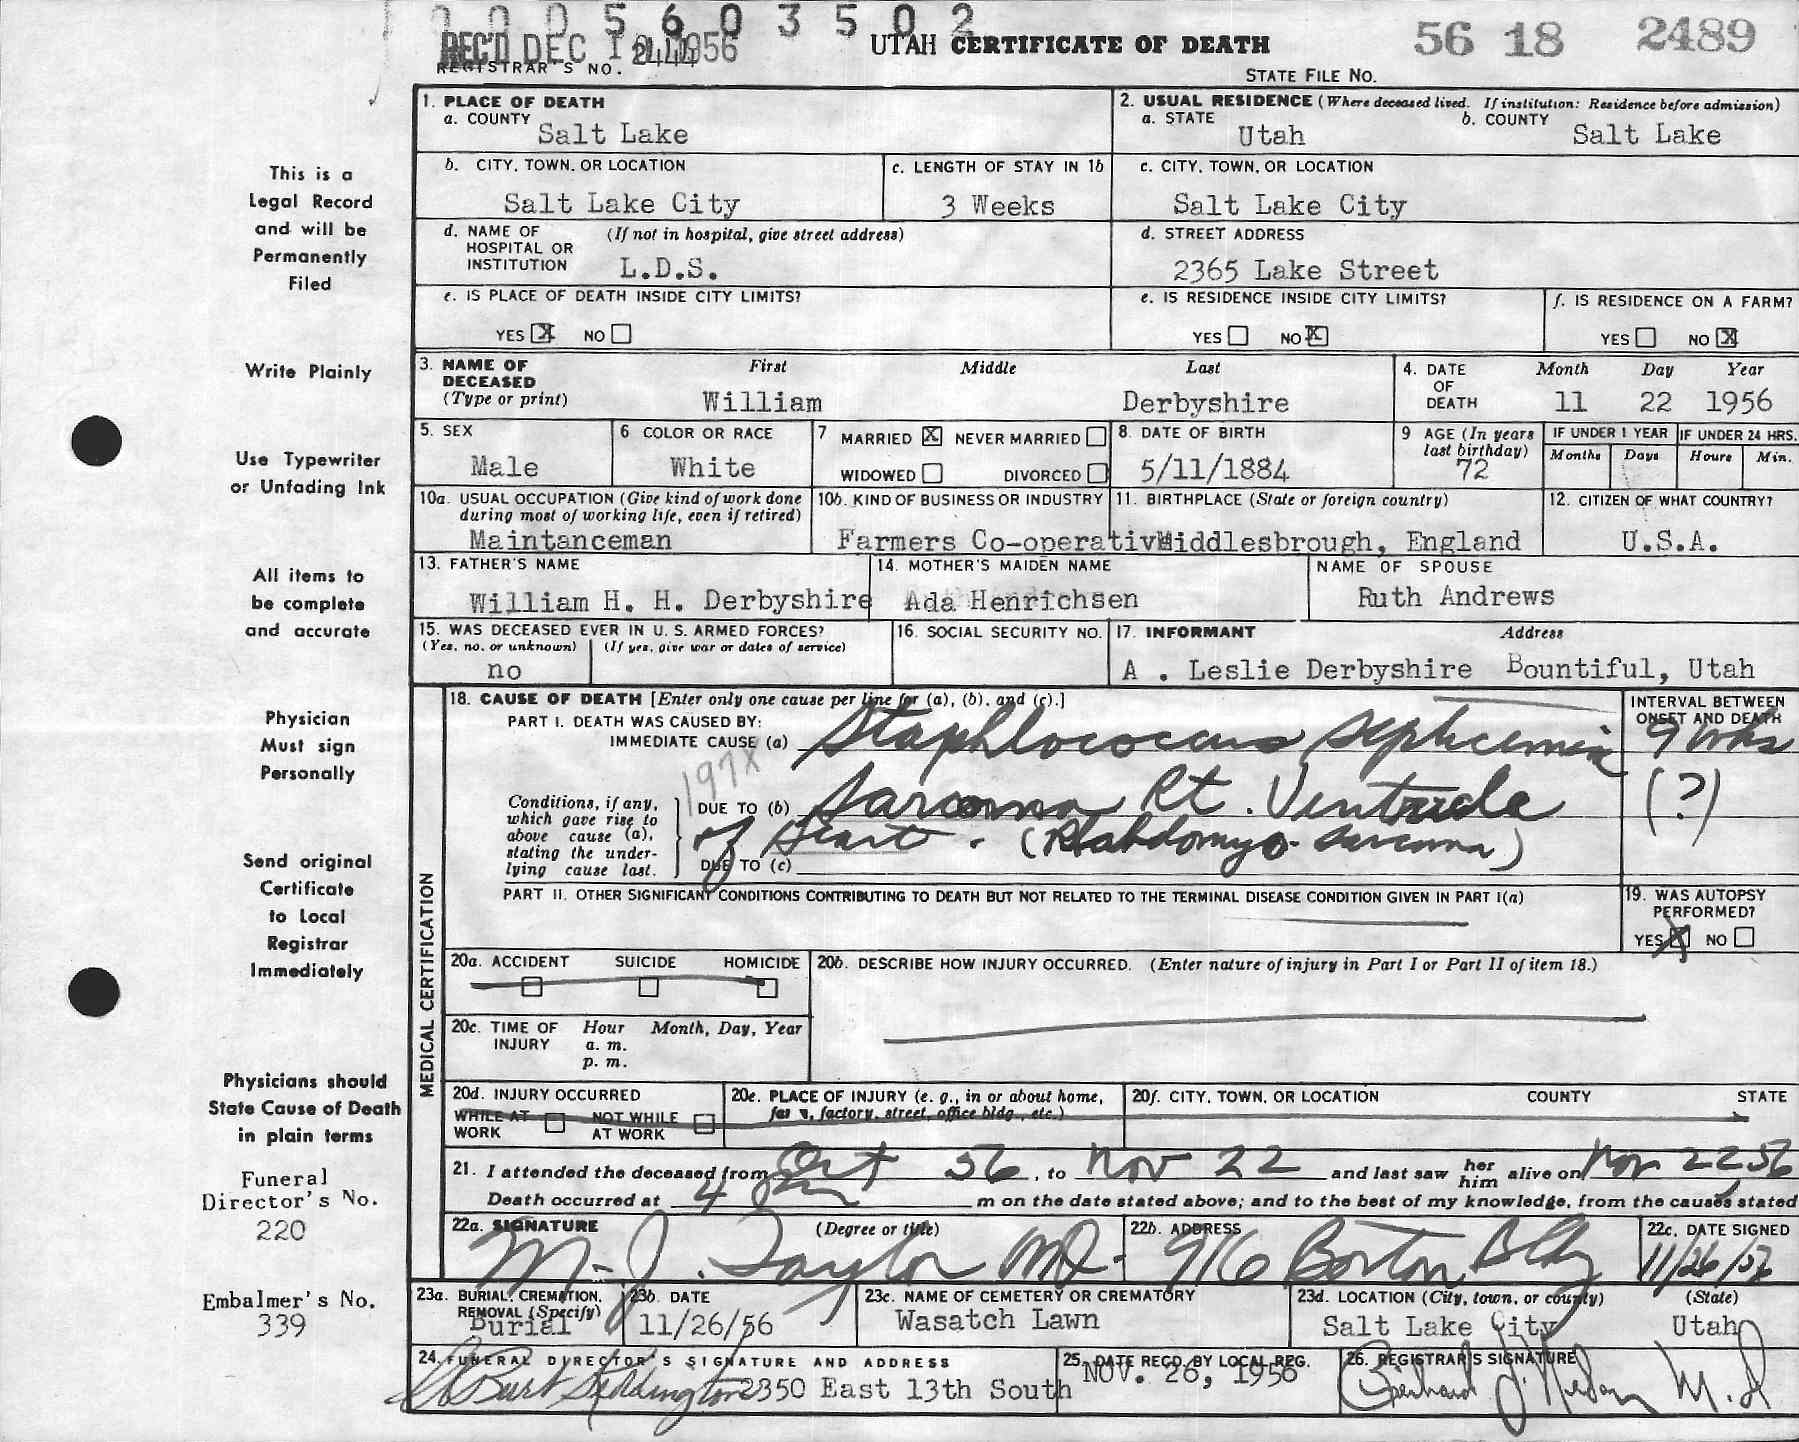 0005603502
REC'D DEC 1 1956 2444
UTAH CERTIFICATE OF DEATH
56 18 2489
REGISTRAR'S NO.
STATE FILE NO.
1. PLACE OF DEATH
a. COUNTY
Salt Lake
2. USUAL RESIDENCE (Where deceased lived. If institution: Residence before admission)
a. STATE
Utah
b. COUNTY
Salt Lake
This is a
Legal Record
and will be
Permanently
Filed
b. CITY, TOWN, OR LOCATION
Salt Lake City
c. LENGTH OF STAY IN 1b
3 Weeks
c. CITY, TOWN, OR LOCATION
Salt Lake City
d. NAME OF HOSPITAL OR INSTITUTION
(If not in hospital, give street address)
L.D.S.
d. STREET ADDRESS
2365 Lake Street
e. IS PLACE OF DEATH INSIDE CITY LIMITS?
YES X NO
e. IS RESIDENCE INSIDE CITY LIMITS?
YES NO X
f. IS RESIDENCE ON A FARM?
YES NO X
Write Plainly
3. NAME OF DECEASED (Type or print)
First Middle Last
William Derbyshire
4. DATE OF DEATH
Month Day Year
11 22 1956
5. SEX
Male
6 COLOR OR RACE
White
7 MARRIED X NEVER MARRIED
WIDOWED DIVORCED
8. DATE OF BIRTH
5/11/1884
9 AGE (In years last birthday)
72
IF UNDER 1 YEAR
Months Days
IF UNDER 24 HRS.
Hours Min.
Use Typewriter
or Unfading Ink
10a. USUAL OCCUPATION (Give kind of work done
during most of working life, even if retired)
Maintanceman
10b. KIND OF BUSINESS OR INDUSTRY
Farmers Co-operativ
11. BIRTHPLACE (State or foreign country)
Middlesbrough, England
12. CITIZEN OF WHAT COUNTRY?
U.S.A.
All items to
be complete
and accurate
13. FATHER'S NAME
William H. H. Derbyshire
14. MOTHER'S MAIDEN NAME
Ada Henrichsen
NAME OF SPOUSE
Ruth Andrews
15. WAS DECEASED EVER IN U. S. ARMED FORCES?
(Yes, no. or unknown) (If yes, give war or dates of service)
no
16. SOCIAL SECURITY NO.
17. INFORMANT Address
A . Leslie Derbyshire Bountiful, Utah
Physician
Must sign
Personally
MEDICAL CERTIFICATION
18. CAUSE OF DEATH [Enter only one cause per line for (a), (b), and (c).]
PART I. DEATH WAS CAUSED BY:
IMMEDIATE CAUSE (a) Staphlococcus septicemia
INTERVAL BETWEEN
ONSET AND DEATH
9 wks
197X
Conditions, if any,
which gave rise to
above cause (a),
stating the under-
lying cause last.
DUE TO (b) Sarcoma Rt. Ventricle
(?)
of Heart. (Rhabdomyo-sarcoma)
DUE TO (c)
Send original
Certificate
to Local
Registrar
Immediately
PART II. OTHER SIGNIFICANT CONDITIONS CONTRIBUTING TO DEATH BUT NOT RELATED TO THE TERMINAL DISEASE CONDITION GIVEN IN PART I(a)
19. WAS AUTOPSY
PERFORMED?
YES X NO
20a. ACCIDENT SUICIDE HOMICIDE
20b. DESCRIBE HOW INJURY OCCURRED. (Enter nature of injury in Part I or Part II of item 18.)
20c. TIME OF INJURY
Hour Month, Day, Year
a. m.
p. m.
Physicians should
State Cause of Death
in plain terms
20d. INJURY OCCURRED
WHILE AT WORK NOT WHILE AT WORK
20e. PLACE OF INJURY (e. g., in or about home,
farm, factory, street, office bldg., etc.)
20f. CITY, TOWN, OR LOCATION COUNTY STATE
21. I attended the deceased from Oct 56, to Nov 22 and last saw her him alive on Nov 22 56
Death occurred at 4 pm m on the date stated above; and to the best of my knowledge, from the causes stated
Funeral
Director's No.
220
22a. SIGNATURE (Degree or title)
M. J. Taylor MD.
22b. ADDRESS
916 Boston Bldg
22c. DATE SIGNED
11/26/56
Embalmer's No.
339
23a. BURIAL, CREMATION,
REMOVAL (Specify)
Burial
23b. DATE
11/26/56
23c. NAME OF CEMETERY OR CREMATORY
Wasatch Lawn
23d. LOCATION (City, town, or county) (State)
Salt Lake City Utah
24. FUNERAL DIRECTOR'S SIGNATURE AND ADDRESS
Burt 2350 East 13th South
25. DATE RECD. BY LOCAL REG.
NOV. 26, 1956
26. REGISTRAR'S SIGNATURE
M.D